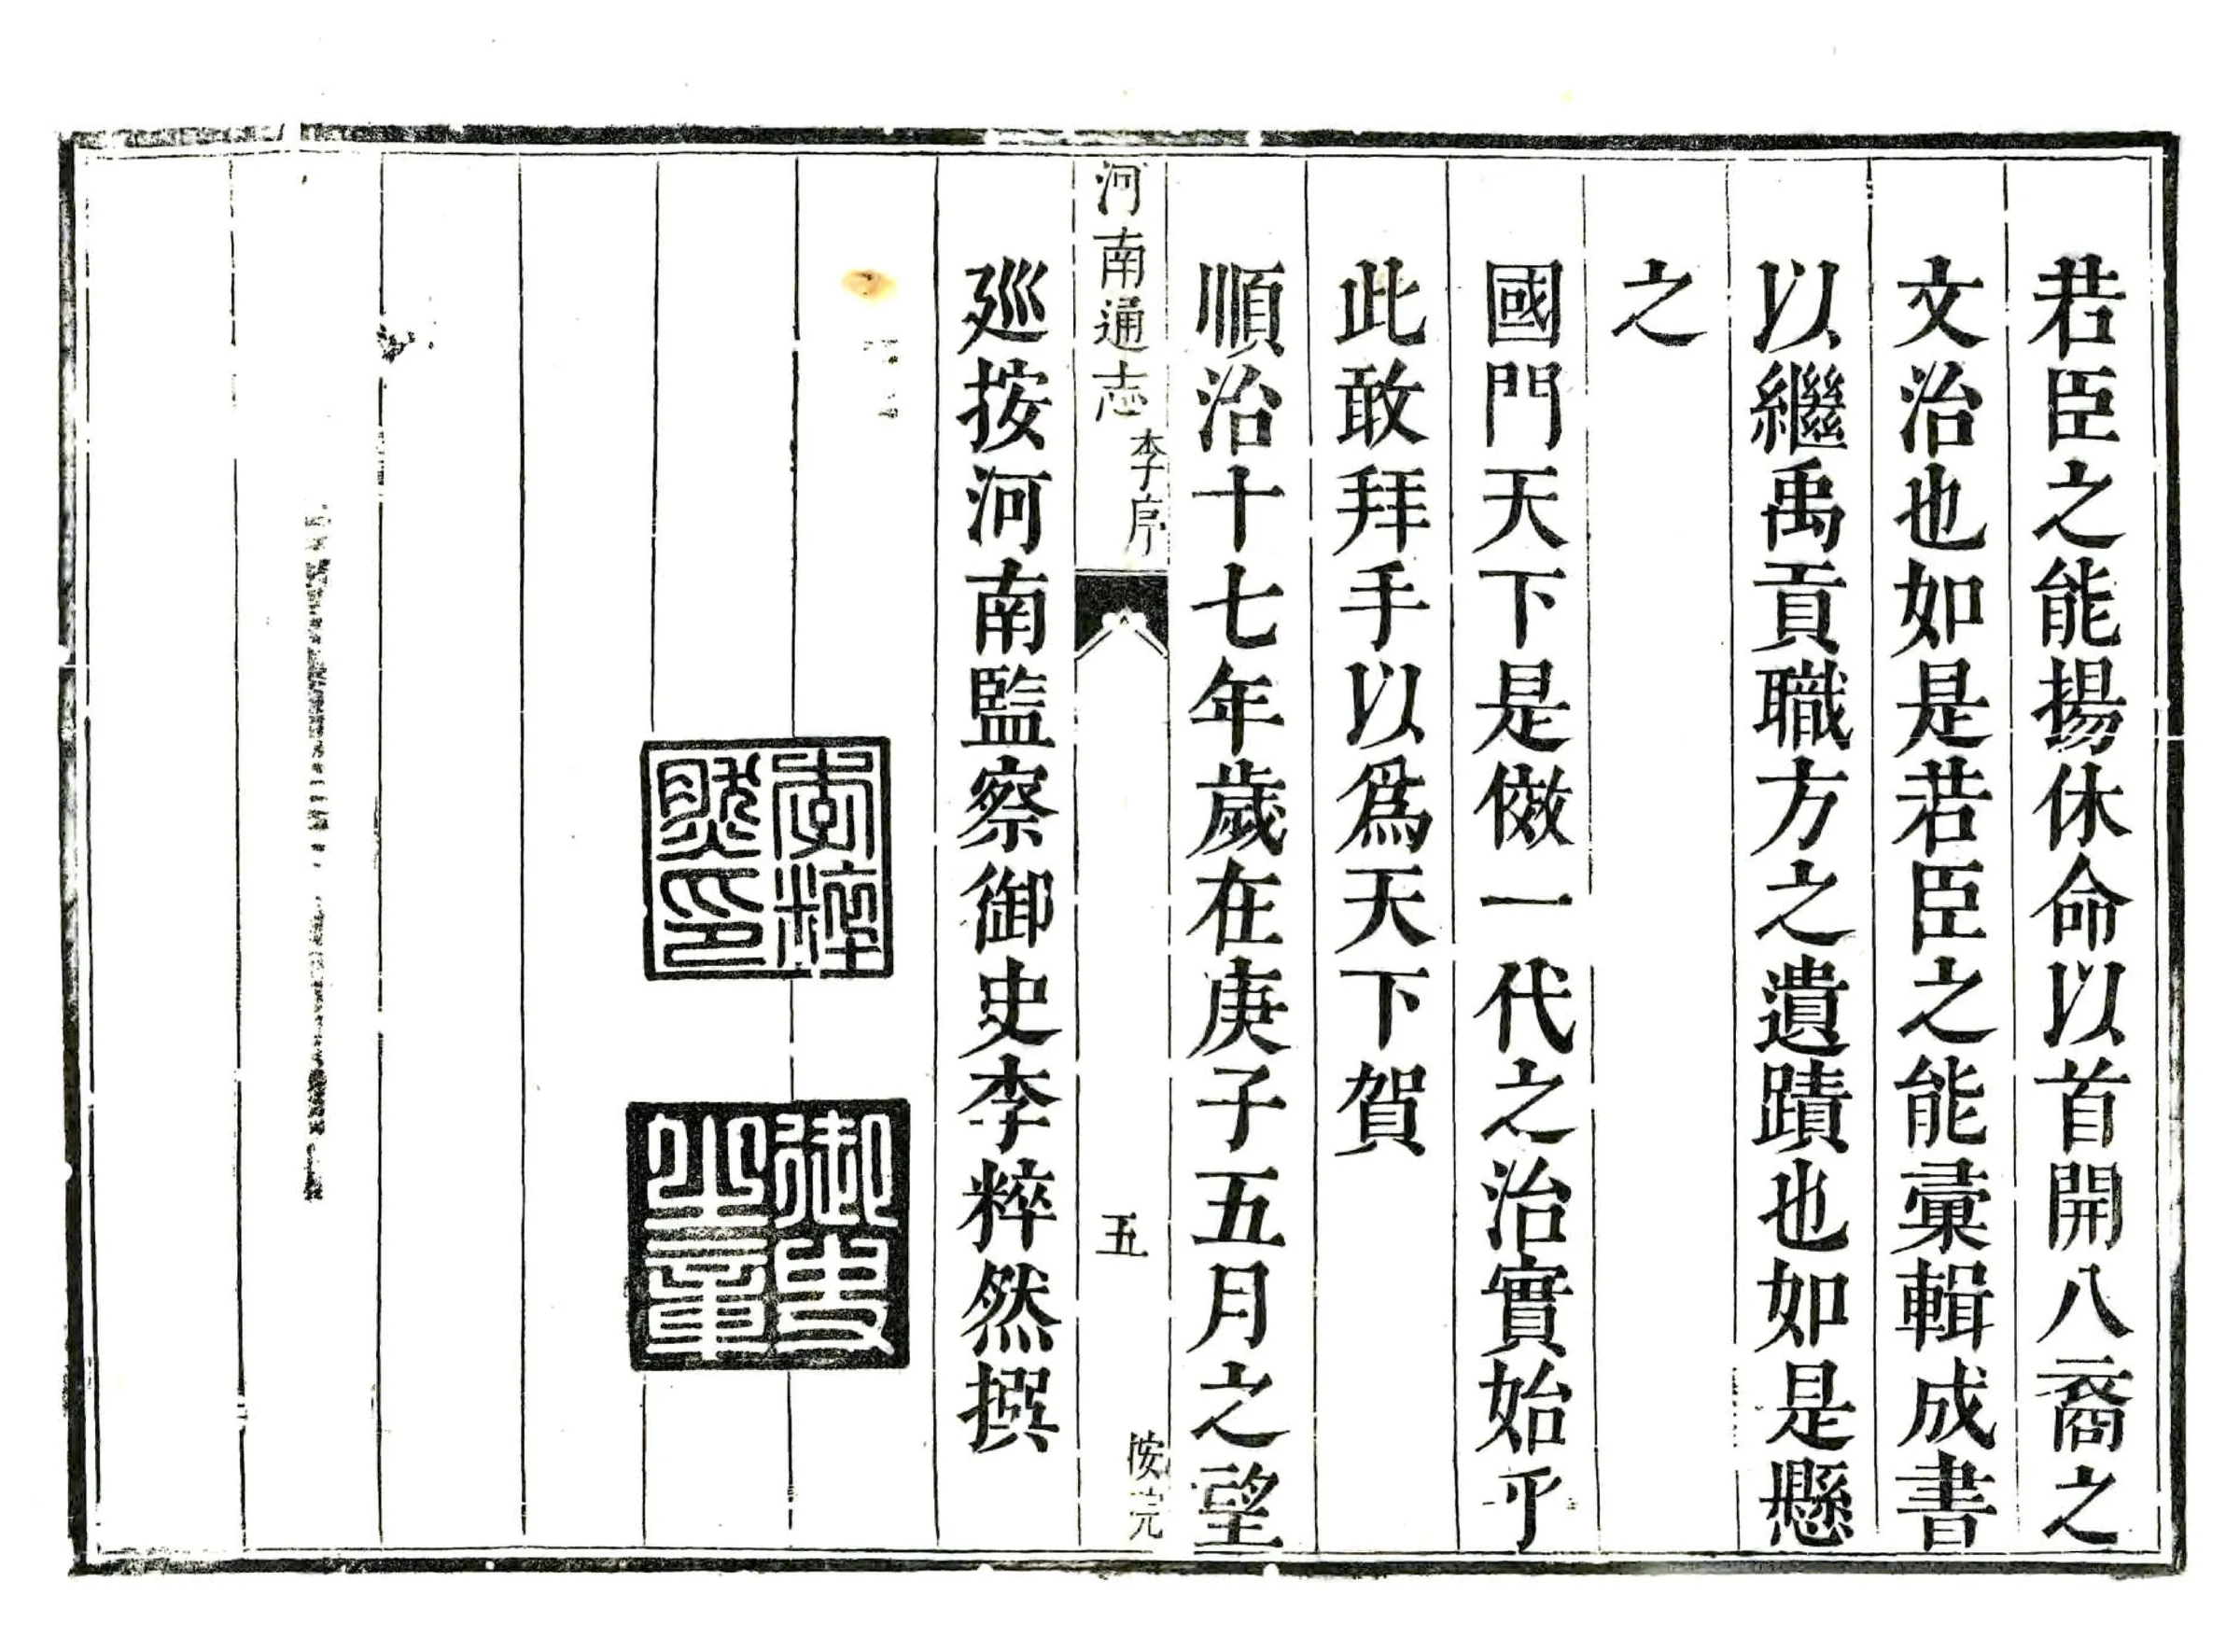 君臣之能揚休命以首開八裔之
文治也如是君臣之能彙輯成書
以繼禹貢職方之遺蹟也如是懸
之
國門天下是傚一代之治實始乎
此敢拜手以爲天下賀
順治十七年歲在庚子五月之望
河南通志
李序
五
按院
廵按河南監察御史李粹然撰
李粹
然印
御史
之章